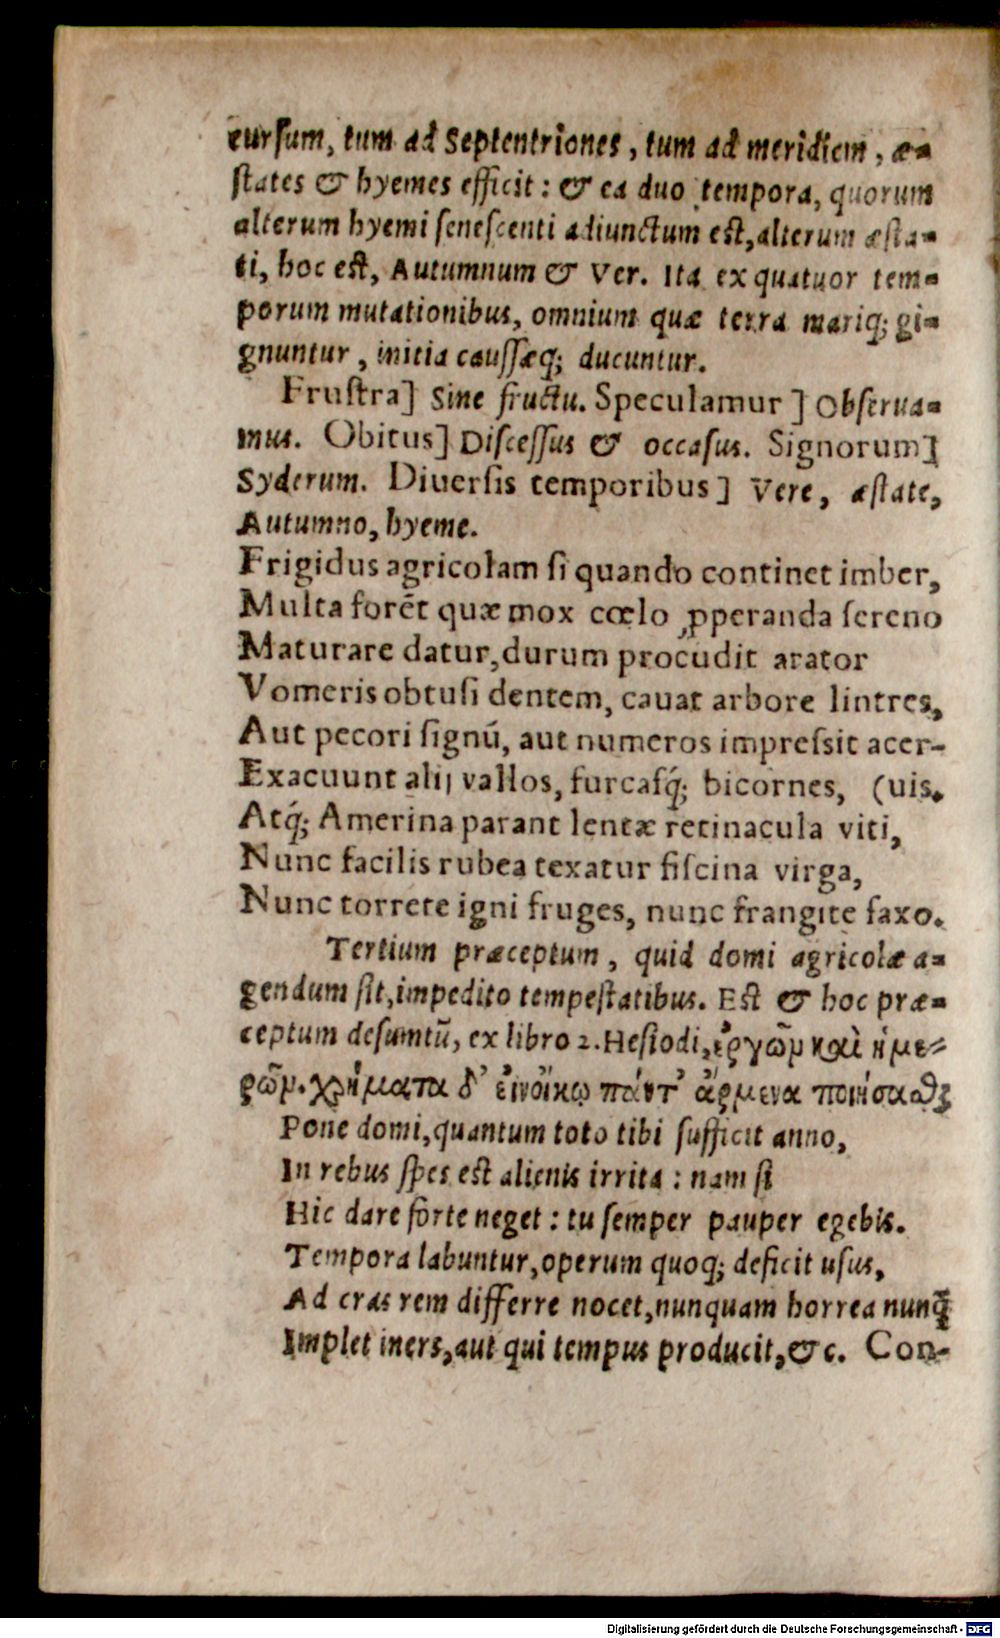 cursum, tum ad Septentriones, tum ad meridiem, æ-
ſtates & hyemes efficit: & ea duo tempora, quorum
alterum hyemi ſeneſcenti adiunctum eſt, alterum æſta-
ti, hoc eſt, Autumnum & Ver. Ita ex quatuor tem-
porum mutationibus, omnium quæ terra mariq; gi-
gnuntur, initia cauſſæq; ducuntur.
Fruſtra] Sine fructu. Speculamur] Obſerua-
mus. Obitus] Diſceſſus & occaſus. Signorum]
Syderum. Diuerſis temporibus] Vere, æſtate,
Autumno, hyeme.
Frigidus agricolam ſi quando continet imber,
Multa forēt quæ mox cœlo ꝓperanda ſereno
Maturare datur, durum procudit arator
Vomeris obtuſi dentem, cauat arbore lintres,
Aut pecori ſignū, aut numeros impreſsit acer-
Exacuunt alij vallos, furcaſq́; bicornes, (uis.
Atq́; Amerina parant lentæ retinacula viti,
Nunc facilis rubea texatur fiſcina virga,
Nunc torrete igni fruges, nunc frangite ſaxo.
Tertium præceptum, quid domi agricolæ a-
gendum ſit, impedito tempeſtatibus. Eſt & hoc præ-
ceptum deſumtū, ex libro 2. Heſiodi, ἐργῶν καὶ ἡμε-
ρῶν. χρήματα δ’ εἰνοἴκῳ πάντ’ ἄρμενα ποιήσαϑζ
Pone domi, quantum toto tibi ſufficit anno,
In rebus ſpes eſt alienis irrita: nam ſi
Hic dare forte neget: tu ſemper pauper egebis.
Tempora labuntur, operum quoq; deficit uſus,
Ad cras rem differre nocet, nunquam horrea nunq̃
Implet iners, aut qui tempus producit, &c. Con-
Digitalisierung gefördert durch die Deutsche Forschungsgemeinschaft - DFG